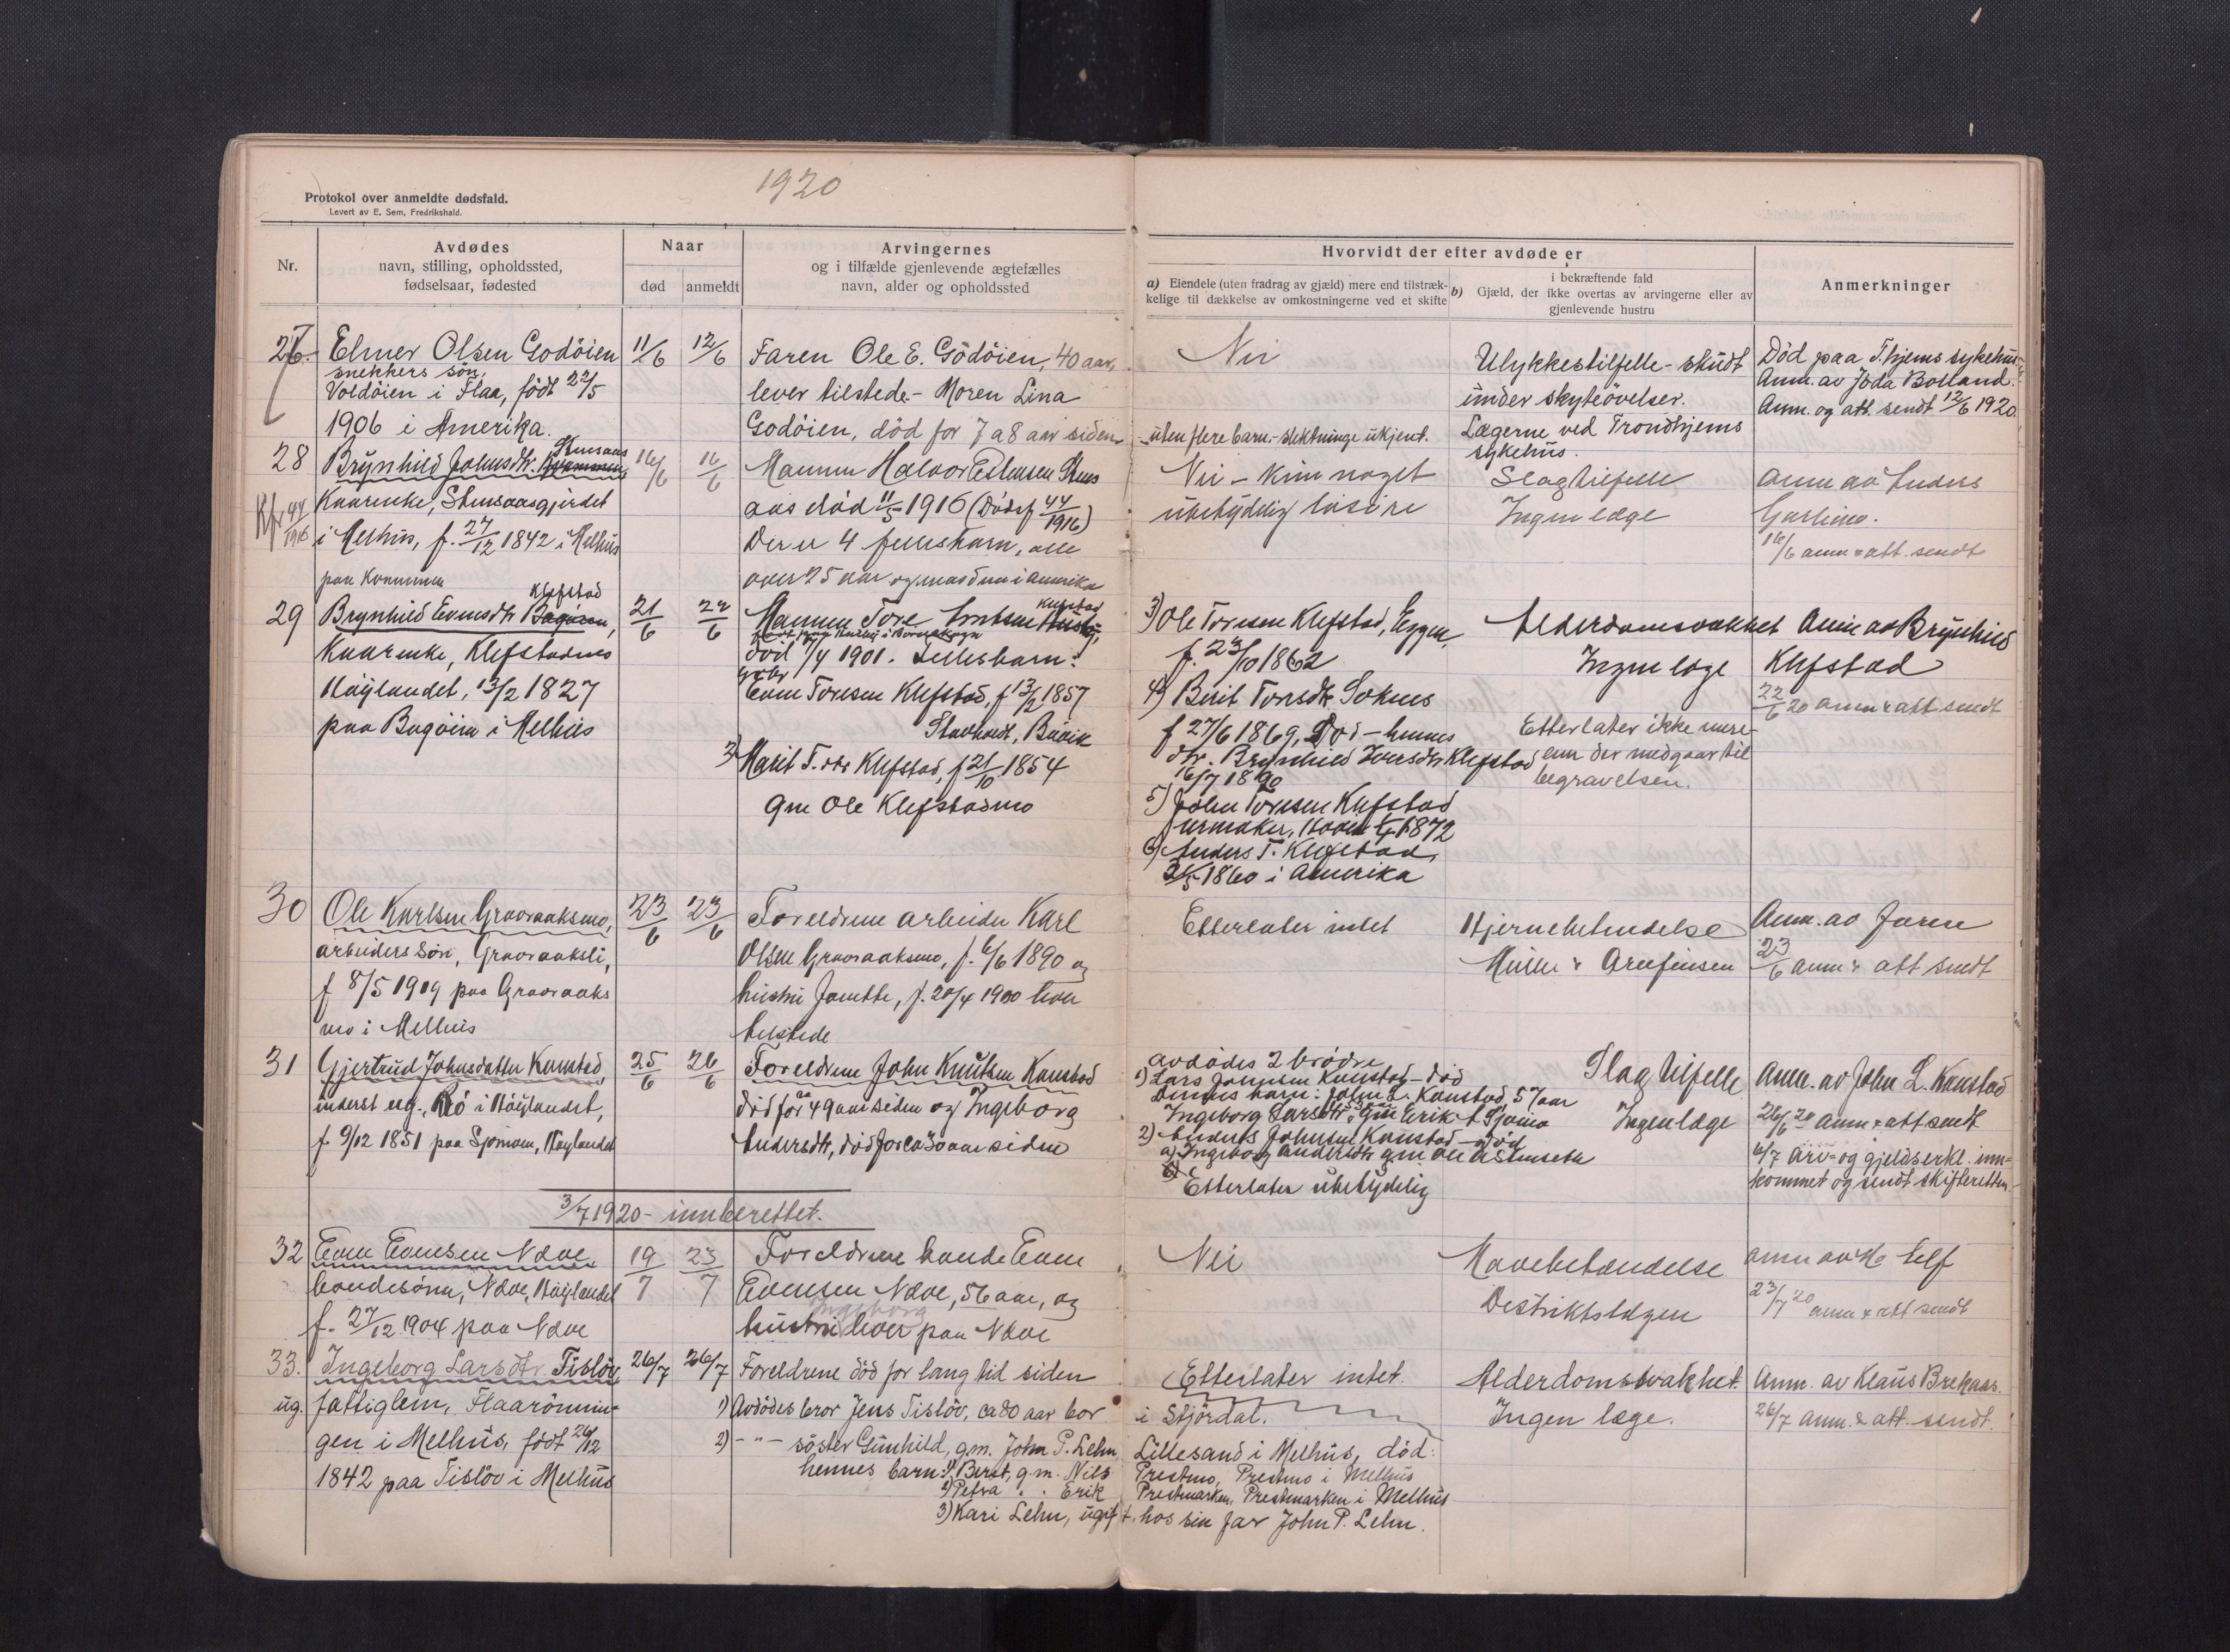 1920
Protokol over anmeldte dødsfald.
Levert av E. Sem, Fredrikshald.
Nr.
Avdødes
navn, stilling, opholdssted,
fødselsaar, fødested
Naar
død
anmeldt
Arvingernes
og i tilfælde gjenlevende ægtefælles
navn, alder og opholdssted
Hvorvidt der efter avdøde er
a) Eiendele (uten fradrag av gjæld) mere end tilstræk-
kelige til dækkelse av omkostningerne ved et skifte
i bekræftende fald
b) Gjæld, der ikke overtas av arvingerne eller av
gjenlevende hustru
Anmerkninger
27. Elmer Olsen Godöien
snekkers sön,
Voldöien i Flaa, födt 22/5
1906 i Amerika.
11/6
12/6
Faren Ole E. Godöien, 40 aar,
lever tilstede. - Moren Lina
Godöien, död for 7 a 8 aar siden
- uten flere barn. - slektninge ukjent.
Nei
Ulykkestilfelle - skudt
under skyteövelser.
Lægerne ved Trondhjems
sykehus.
Död paa T.hjems sykehus.
Anm. av Boland.
Anm. og att. sendt 12/6 1920
28
Kfr 44/1916
Brynhild Johnsdtr. Stensaas
Kaarenke, Stensaasgjerdet
i Melhus, f. 27/12 1842 i Melhus
paa Kvammen
16/6
16/6
Mannen Halvor Estensen Stens
aas död 11/5 1916 (Dödsf 44/1916)
Der er 4 fellesbarn, alle
over 25 aar og i Amerika
Nei - kun noget
ubetydelig lösöre
Slagtilfelle
Ingen læge
Anm av Anders
16/6 anm & att. sendt
29
Brynhild Evensdtr Bagöien, Klefstad
Kaarenke, Klefstadmo
Höylandet, 13/2 1827
paa Bagöien i Melhus
21/6
22/6
Mannen Tore Klefstad
död 7/4 1901. Fellesbarn:
Even Toresen Klefstad, f 13/2 1857
Buvik
2) Marit T. dtr Klefstad, f 21/10 1854
gm Ole Klefstadmo
3) Ole Toresen Klefstad, Eggen,
f. 23/10 1862
4) Berit Toresdtr Soknes
f 27/6 1869, Död - hennes
dtr. Brynhild Iversdtr Klefstad
16/7 1890
5) John Toresen Klefstad
urmaker, 1872
6) Anders T. Klefstad,
1860 i Amerika
Alderdomsvakhet
Ingen læge
Etterlater ikke mere
enn der medgaar til
begravelsen.
Anm av Brynhild
Klefstad
22/6 20 anm & att sendt
30
Ole Karlsen Graoraaksmo,
arbeiders sön, Graoraaksli,
f 8/5 1919 paa Graoraaks
mo i Melhus
23/6
23/6
Foreldrene arbeider Karl
Olsen Graoraaksmo, f. 6/6 1890 og
hustru Janette, f. 20/4 1900 lever
tilstede
Etterlater intet
Hjernebetendelse
Müller &
Anm. av Faren
23/6 anm & att sendt
31
Gjertrud Johnsdatter Kanstad,
inderst ug., Rö i Höylandet,
f. 9/12 1851 paa Sjömoen, Höylandet
25/6
26/6
Foreldrene John Knutsen Kanstad
död for ca 49 aar siden og Ingeborg
Andersdtr, död for ca 30 aar siden
avdödes 2 brödre
1) Lars Johnsen Kanstad - död
Dennes barn: John L. Kanstad, 57 aar
Ingeborg Larsdtr, gm Erik Sjömo
2) Anders Johnsen Kanstad - död
a) Ingeborg Andersdtr gm Ole
Etterlater ubetydelig
Slagtilfelle
Ingen læge
Anm. av John L. Kanstad
26/6 20 anm & att sendt
6/7 arv- og gjeldserkl. inn-
kommet og sendt skifteretten.
3/7 1920 - innberettet.
32
Even Evensen Ndoe
bondesönn, Ndoe, Höylandet
f. 27/12 1904 paa Ndoe
19/7
23/7
Foreldrene bonde Even
Evensen Ndoe, 56 aar, og
hustru Ingeborg lever paa Ndoe
Nei
Mavebetendelse
Destriktslægen
anm av telf
23/7 20 anm & att sendt
33.
ug.
Ingeborg Larsdtr. Tislöv
fattiglem, Flaarönnin-
gen i Melhus, födt 26/12
1842 paa Tislöv i Melhus
26/7
26/7
Foreldrene död for lang tid siden
1) Avdödes bror Jens Tislöv, ca 80 aar bor i Stjördal.
2) - " - söster Gunhild, g.m. John P. Lehn, Lillesand i Melhus, död:
hennes barn: 1) Berit, g.m. Nils Prestmo, Prestmo i Melhus
2) Petra " " Erik Prestmarken, Prestmarken i Melhus
3) Kari Lehn, ugift, hos sin far John P. Lehn.
Etterlater intet.
Alderdomsvakhet.
Ingen læge.
Anm. av Klaus Brekaas.
26/7 anm. & att. sendt.